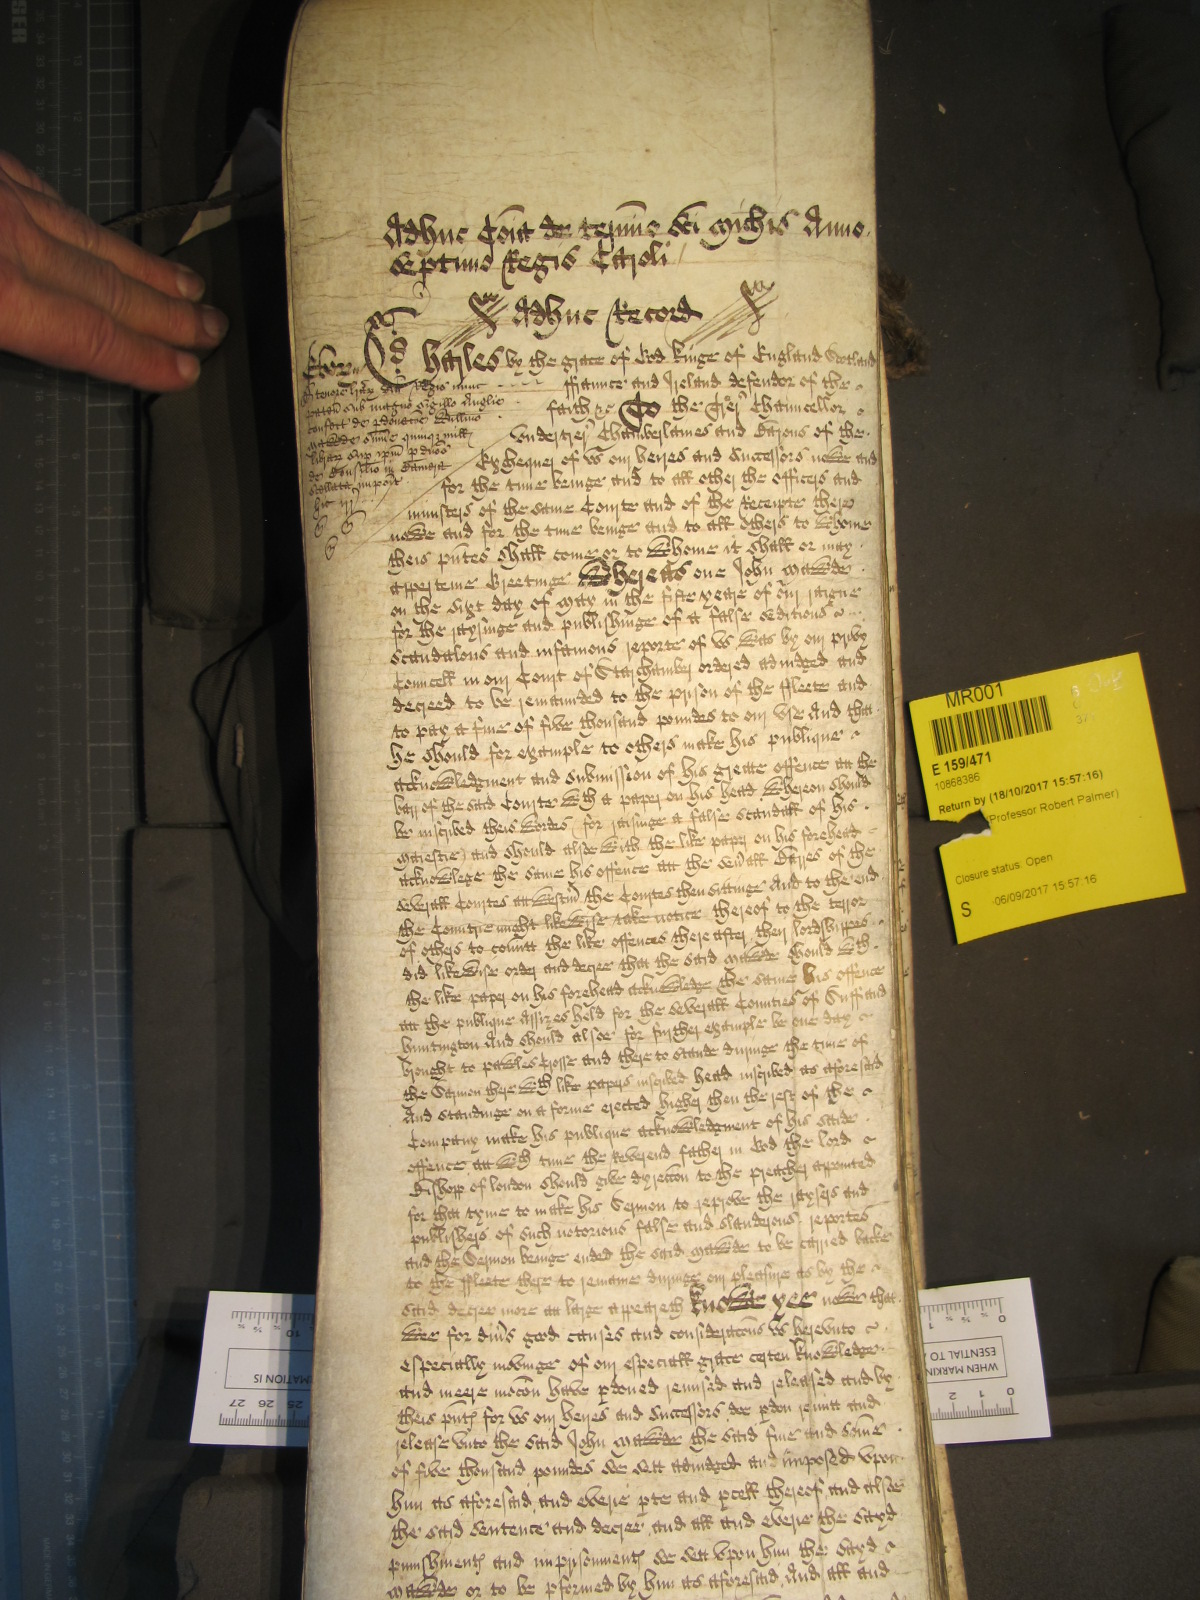 Adhuc Coia de termino Sci Michis Anno
septimo Regis Caroli
Adhuc Record
Charles by the grace of God kinge of England Scotland
ffraunce and Ireland defendor of the
faith &c To the Trer Chancellor
undertrer Chamberlaines and Barons of the
Exchequer of us our heires and Successors nowe and
for the time beinge and to all other the officers and
ministers of the same Courte and of the Receipte there
nowe and for the time beinge and to all others to whome
theis pntes shall come or to whome it shall or may
apperteine Greetinge Whereas one John Mawde
on the sixt day of May in the fifte yeare of our raigne
for the raysinge and publishinge of a false seditious
scandalous and infamous reporte of us was by our privy
Councell in our Court of Starchamber ordered adiudged and
decreed to be remaunded to the prison of the ffleete and
to pay a fine of five thousand poundes to our use And that
he should for example to others make his publique
acknowledgment and submission of his greate offence att the
barr of the said Courte wth a paper on his head whereon should
be inscribed theis wordes (for raisinge a false scandall of his
Maiestie) and should alsoe with the like paper on his forehead
acknowlege the same his offence att the severall Barres of the
severall Courtes att Westmr the Courtes then sittinge And to the end
the Countrie might likewise take notice thereof to the terror
of others to comitt the like offences there after their lordshippes
did likewise order and decree that the said Mawde should wth
the like paper on his forehead acknowledge the same his offence
att the publique Assizes held for the severall Counties of Suff and
huntington And should alsoe for further example be one day
brought to pawles Crosse and there to stande duringe the time of
the Sermon there wth like papers inscribed head inscribed as aforesaid
And standinge on a forme erected higher then the rest of the
Company make his publique acknowledgment of his saide
offence att wch time the Reverend father in God the lord
Bishopp of london should give dyreccon to the preacher appointed
for that tyme to make his Sermon to reprove the raysers and
publishers of such notorious false and slanderous reportes
and the Sermon beinge ended the said Mawde to be carried backe
to the ffleete there to remaine duringe our pleasure as by the
said decree more att large appeareth Knowe yee nowe that
wee for divrs good causes and consideracons us hereunto
especially movinge of our especiall grace certen knowledge
and meere mocon have pdoned remised and released and by
theis pntes for us our heires and Successors doe pdon remitt and
release unto the said John Mawde the said fine and some
of five thousand poundes soe sett adiudged and imposed upon
him as aforesaid and everie pte and pcell thereof and alsoe
the said sentence and decree and all and everie the sayd
punishmentes and imprisonmentes soe sett upon him the sayd
Mawde or to be pformed by him as aforesaid And all and
MR001
E 159/471
10868386
Return by (18/10/2017 15:57:16)
(Professor Robert Palmer)
Closure status: Open
S
06/09/2017 15:57:16
MATION IS
WHEN MARKIN
ESENTIAL TO
27 26 25
2 1 0